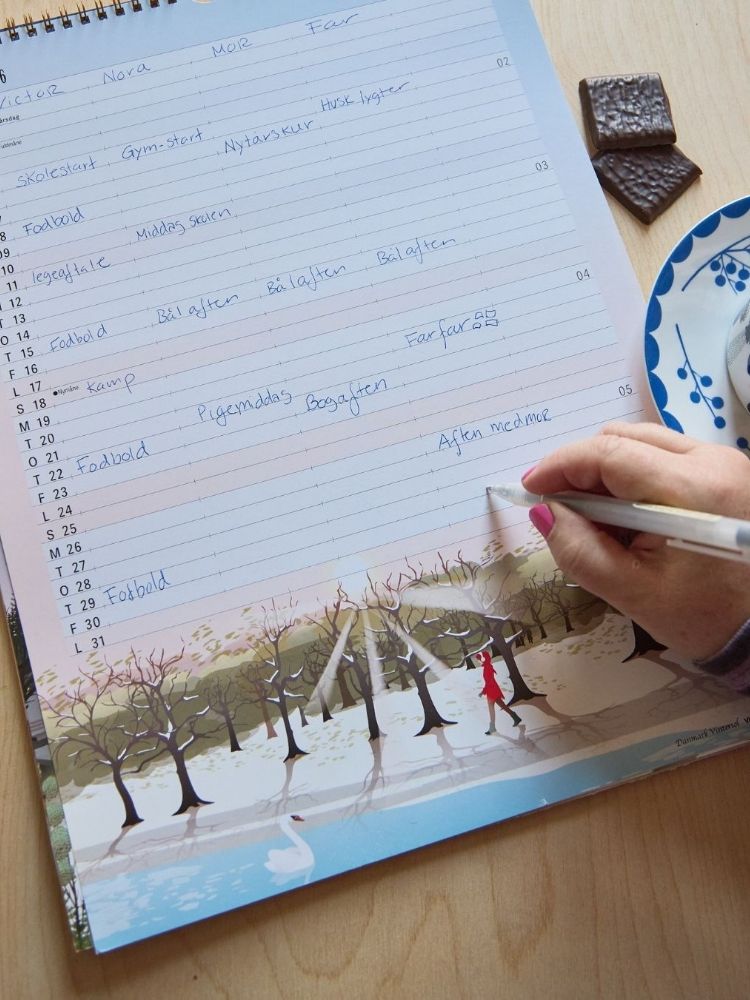 6
Victor Nora MOR Far
02
Skolestart Gym-start Nytårskur Husk lygter
8 Fodbold
09
10 Middag skolen 03
11 legeaftale
12
T 13
O 14
T 15 Fodbold Bål aften Bål aften Bål aften
F 16
L 17
S 18 Nymåne Kamp
M 19 Farfar 04
T 20
O 21 Pigemiddag
T 22 Fodbold Bogaften
F 23
L 24
S 25 Aften med mor
M 26 05
T 27
O 28
T 29 Fodbold
F 30
L 31
Danmark Vintersol